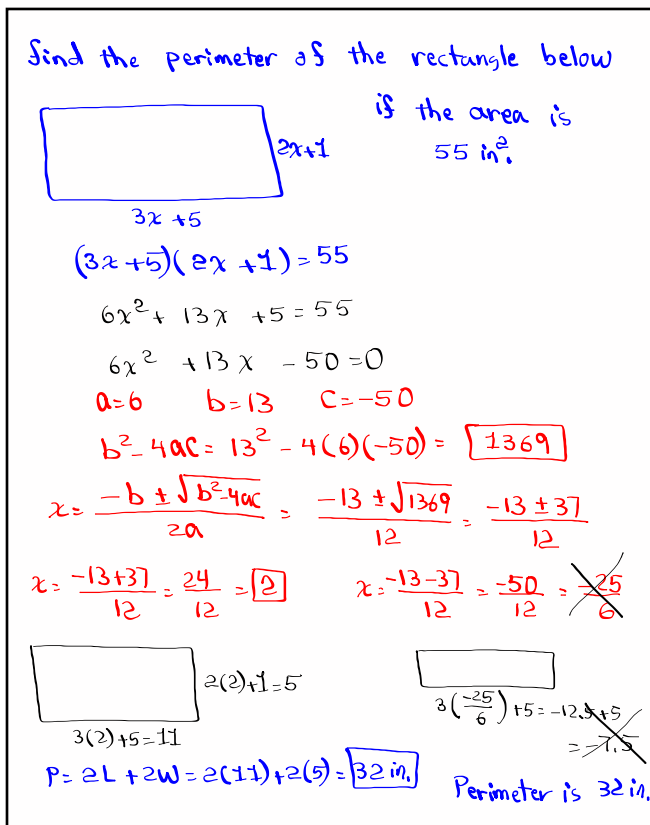 find the perimeter of the rectangle below
if the area is
55 in².
2x+1
3x+5
(3x+5)(2x+1)=55
6x²+13x+5=55
6x²+13x-50=0
a=6 b=13 c=-50
b²-4ac=13²-4(6)(-50)=1369
x=(-b±√(b²-4ac))/2a=(-13±√1369)/12=(-13±37)/12
x=(-13+37)/12=24/12=2 x=(-13-37)/12=-50/12=-25/6
2(2)+1=5
3(2)+5=11
3(-25/6)+5=-12.5+5
=-7.5
P=2L+2W=2(11)+2(5)=32 in.
Perimeter is 32 in.